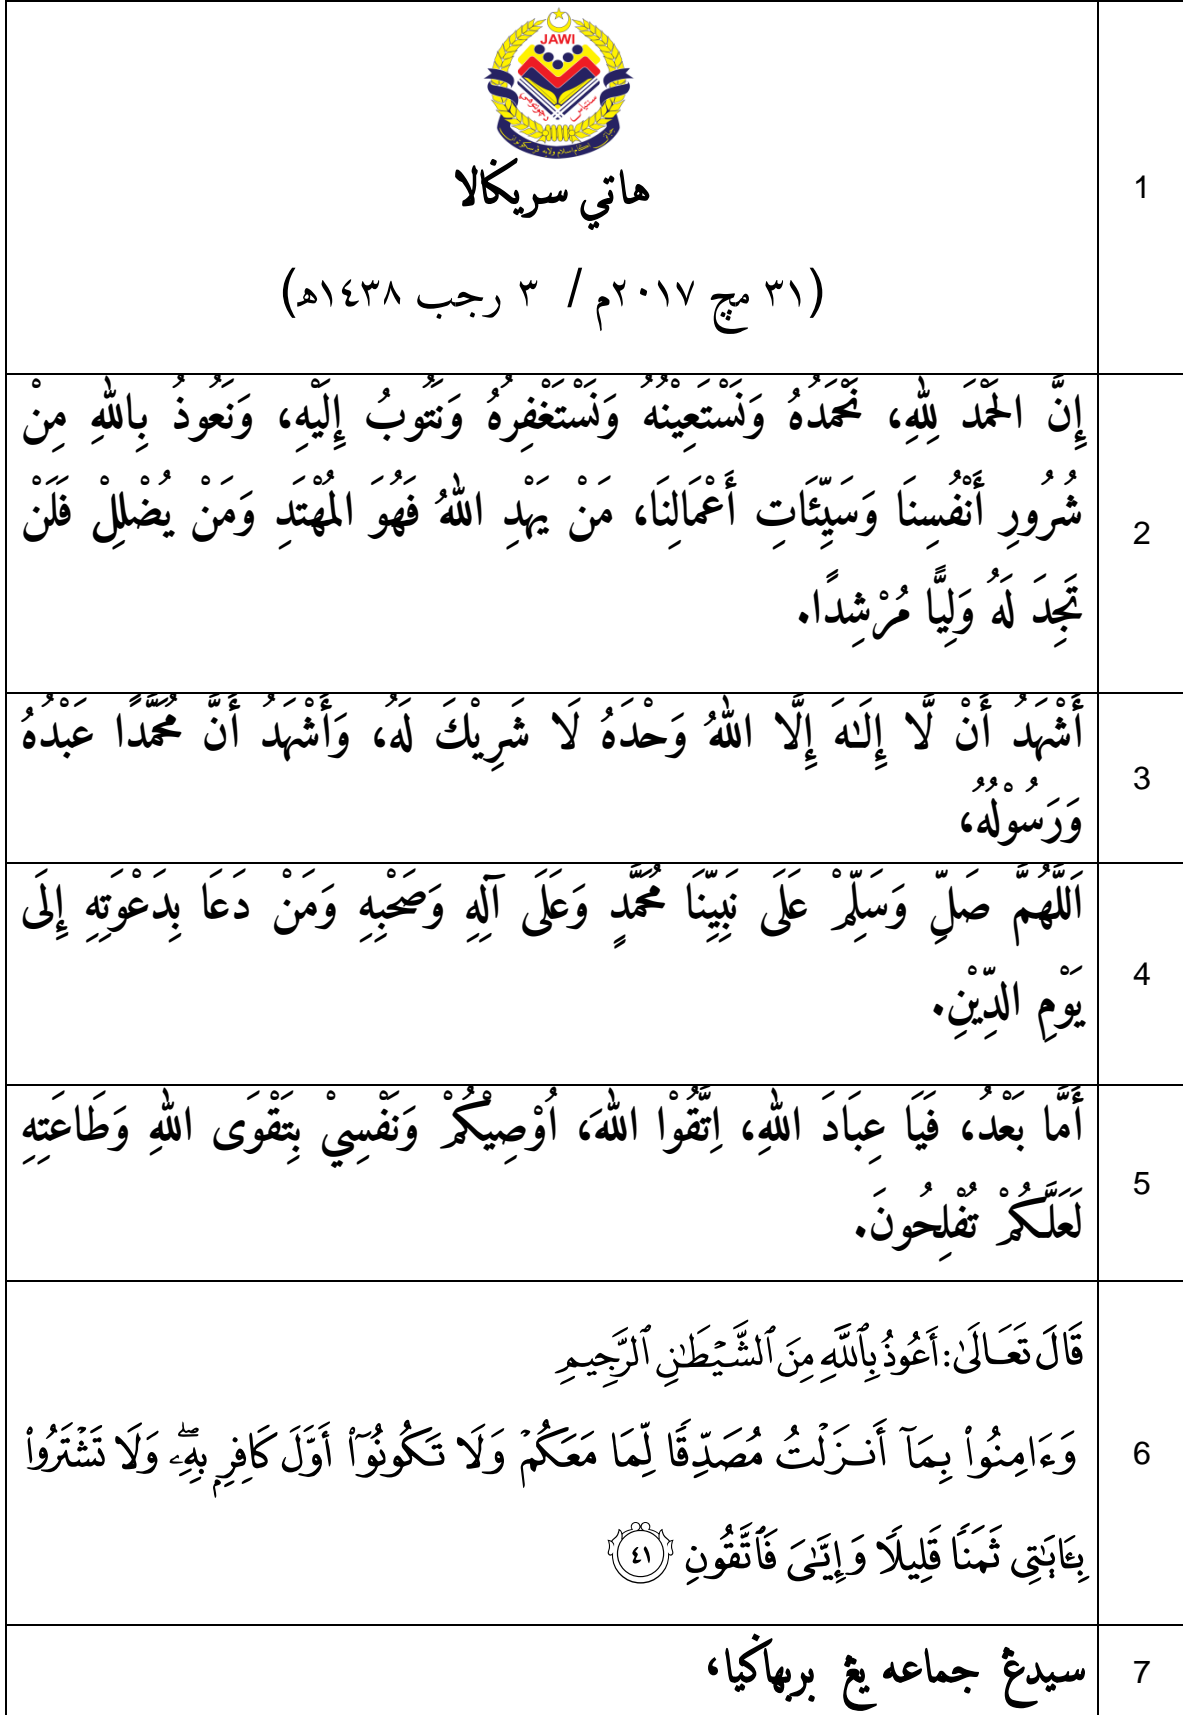 JAWI
هاتي سريݢالا
1
(٣١ مچ ٢٠١٧م / ٣ رجب ١٤٣٨ھ)
إِنَّ الحَمْدَ لِلّٰهِ، نَحْمَدُهُ وَنَسْتَعِيْنُهُ وَنَسْتَغْفِرُهُ وَنَتُوبُ إِلَيْهِ، وَنَعُوذُ بِاللّٰهِ مِنْ
شُرُورِ أَنْفُسِنَا وَسَيِّئَاتِ أَعْمَالِنَا، مَنْ يَهْدِ اللّٰهُ فَهُوَ المُهْتَدِ وَمَنْ يُضْلِلْ فَلَنْ
2
تَجِدَ لَهُ وَلِيًّا مُرْشِدًا.
أَشْهَدُ أَنْ لَّا إِلَـٰهَ إِلَّا اللّٰهُ وَحْدَهُ لَا شَرِيْكَ لَهُ، وَأَشْهَدُ أَنَّ مُحَمَّدًا عَبْدُهُ
3
وَرَسُوْلُهُ،
اَللَّهُمَّ صَلِّ وَسَلِّمْ عَلَى نَبِيِّنَا مُحَمَّدٍ وَعَلَى آلِهِ وَصَحْبِهِ وَمَنْ دَعَا بِدَعْوَتِهِ إِلَى
4
يَوْمِ الدِّيْنِ.
أَمَّا بَعْدُ، فَيَا عِبَادَ اللّٰهِ، اِتَّقُوْا اللّٰهَ، اُوْصِيْكُمْ وَنَفْسِيْ بِتَقْوَى اللّٰهِ وَطَاعَتِهِ
5
لَعَلَّكُمْ تُفْلِحُونَ.
قَالَ تَعَالَىٰ: أَعُوذُ بِٱللَّهِ مِنَ ٱلشَّيْطَٰنِ ٱلرَّجِيمِ
وَءَامِنُوا۟ بِمَآ أَنزَلْتُ مُصَدِّقًا لِّمَا مَعَكُمْ وَلَا تَكُونُوٓا۟ أَوَّلَ كَافِرٍۭ بِهِۦۖ وَلَا تَشْتَرُوا۟
6
بِـَٔايَٰتِى ثَمَنًا قَلِيلًا وَإِيَّٰىَ فَٱتَّقُونِ ﴿٤١﴾
سيدڠ جماعه يڠ بربهاݢيا،
7